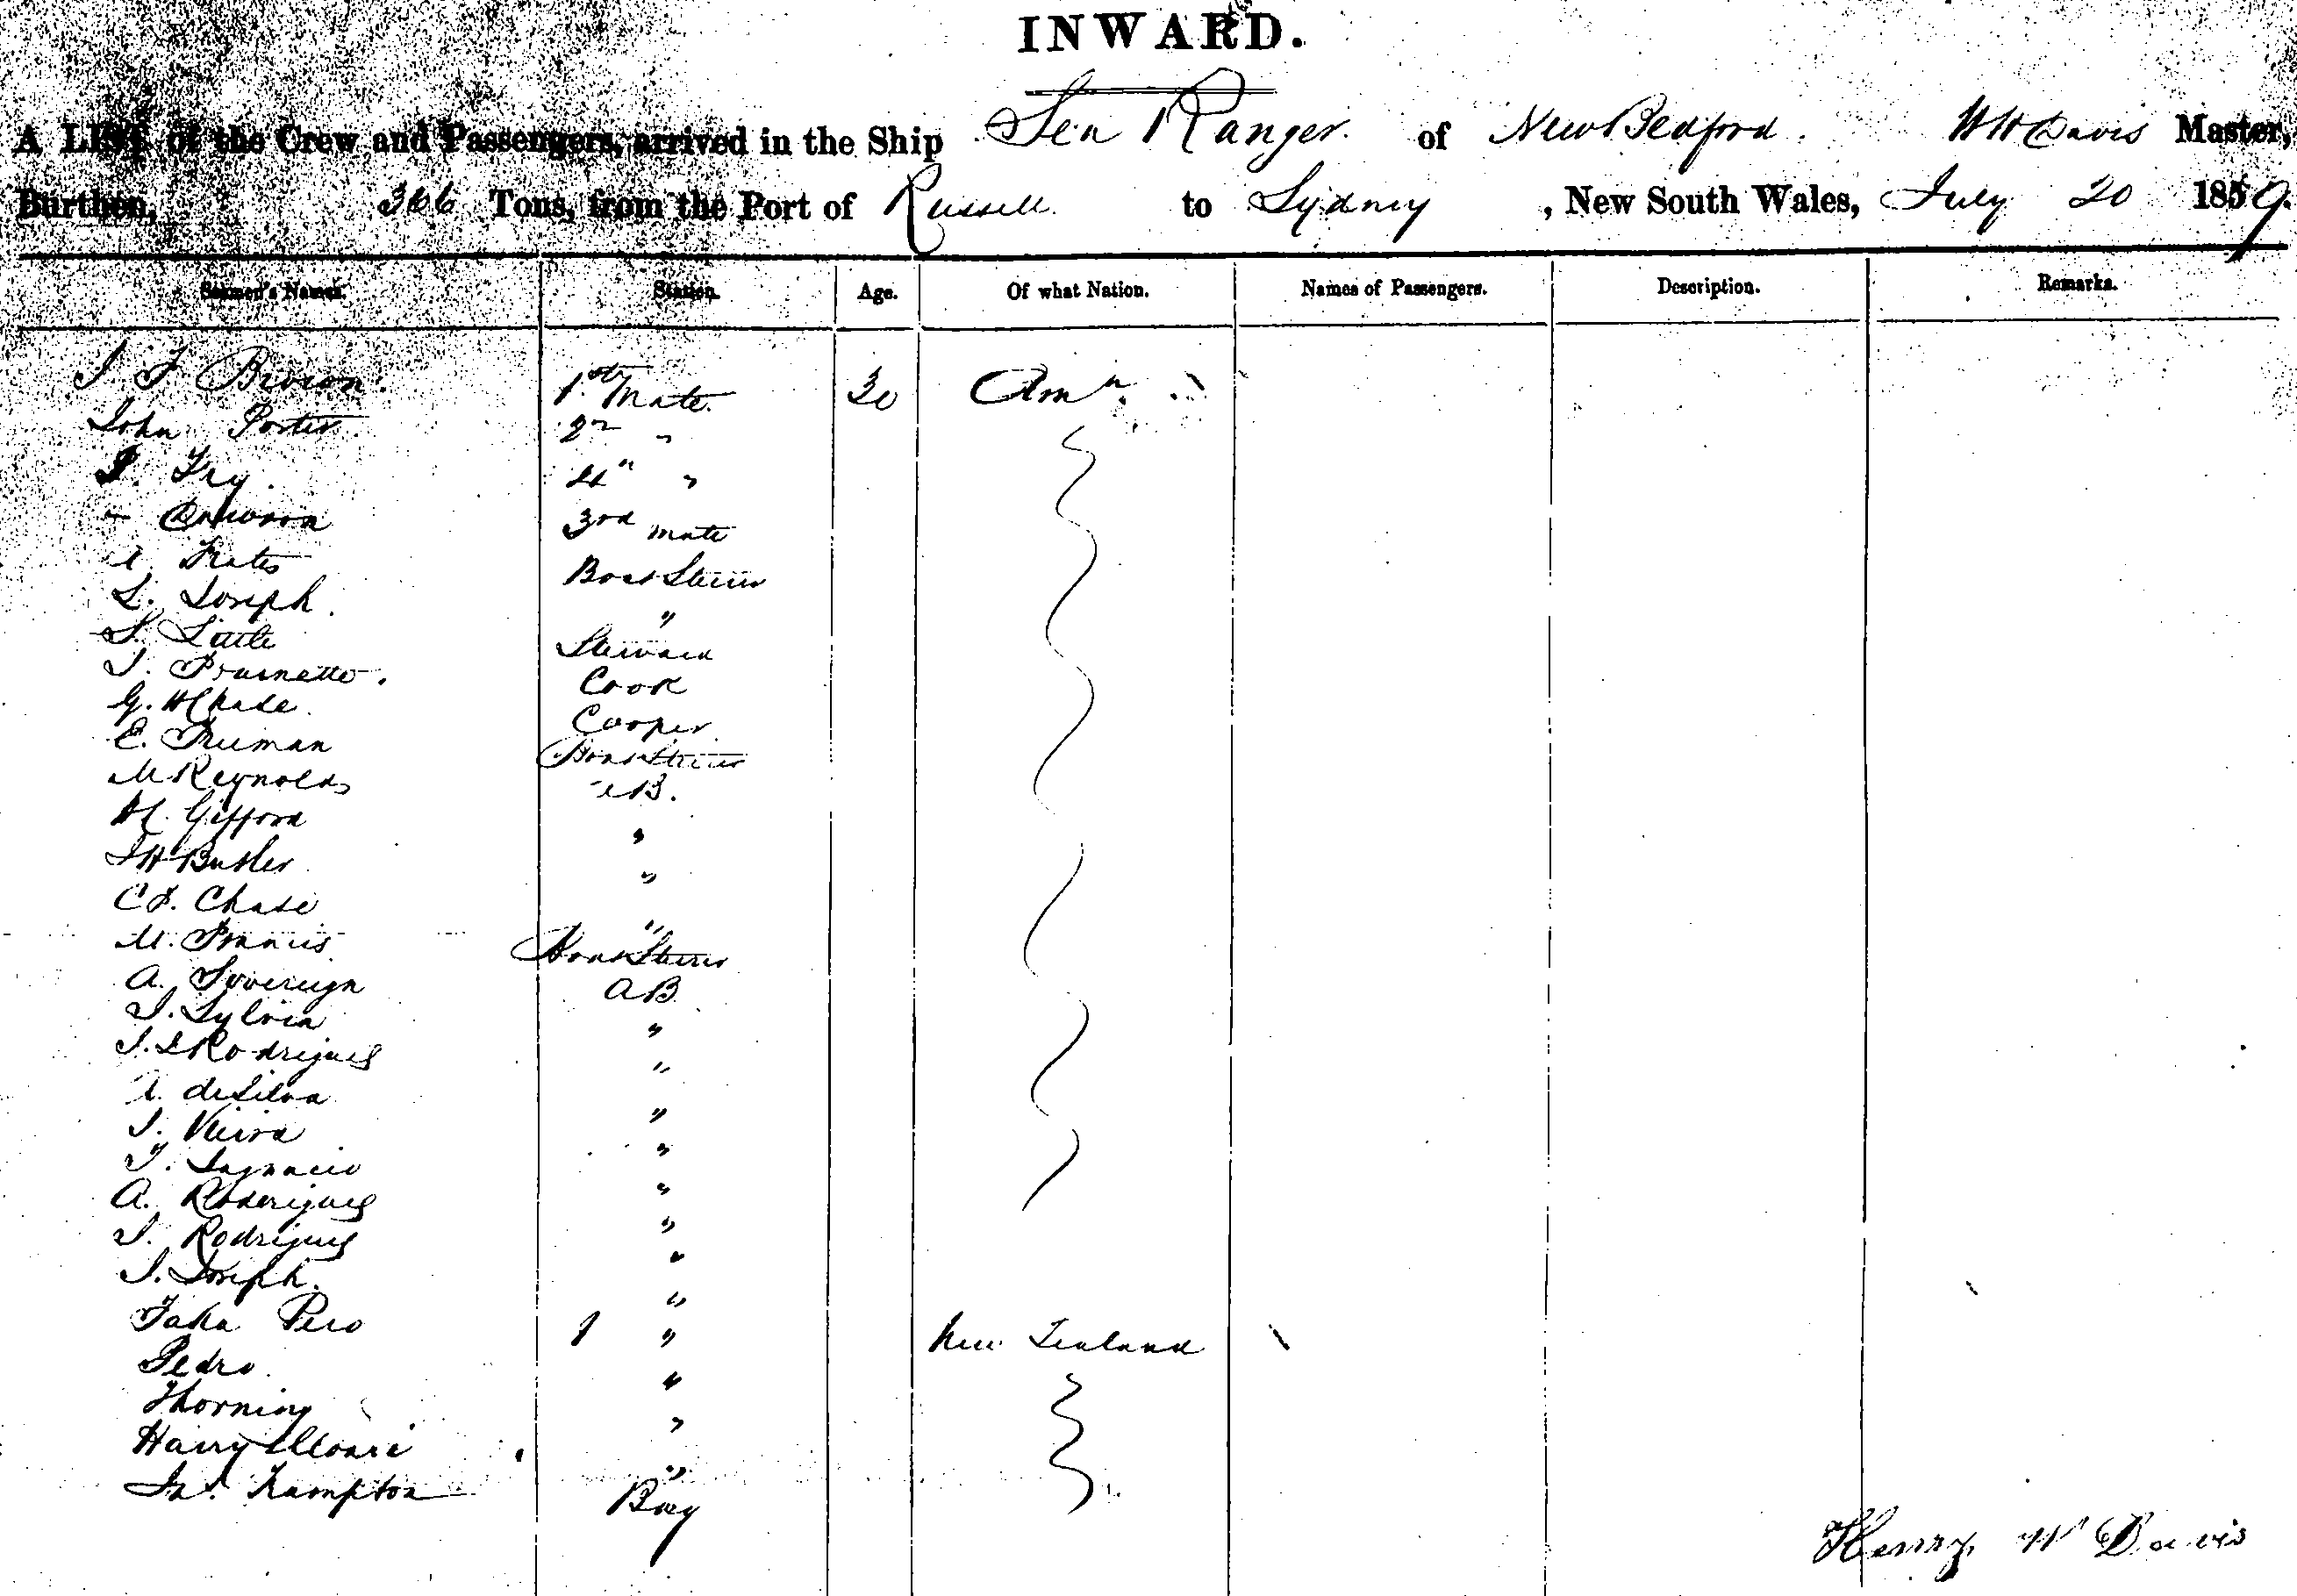 INWARD.
A LIST of the Crew and Passengers, arrived in the Ship Sea Ranger. of New Bedford. W H Davis Master,
Burthen, 366 Tons, from the Port of Russell to Sydney, New South Wales, July 20 1859.
Seamen's Names. Station. Age. Of what Nation. Names of Passengers. Description. Remarks.
J F Brown. 1st Mate. 30 Amn.
John Porter 2n "
Fry. 4n "
3rd mate
Frates Boat Steerer
Joseph. "
Steward
J. Cook
G. H Chase. Cooper
E. Freeman Boat Steerer
M Reynolds AB.
H. Gifford "
J H Butler "
C F. Chase "
M. Francis. Boat Steerer
A. Sovereign AB
J. Sylvia "
J. S Rodrigues "
A. de Silva "
J. Vieira "
J. Ignacio "
A. Roderigues "
J. Rodrigues "
J. Joseph. "
Taka Pero 1 " New Zealand
Pedro "
Thorning "
Harry "
Kampton Boy
Henry W Davis